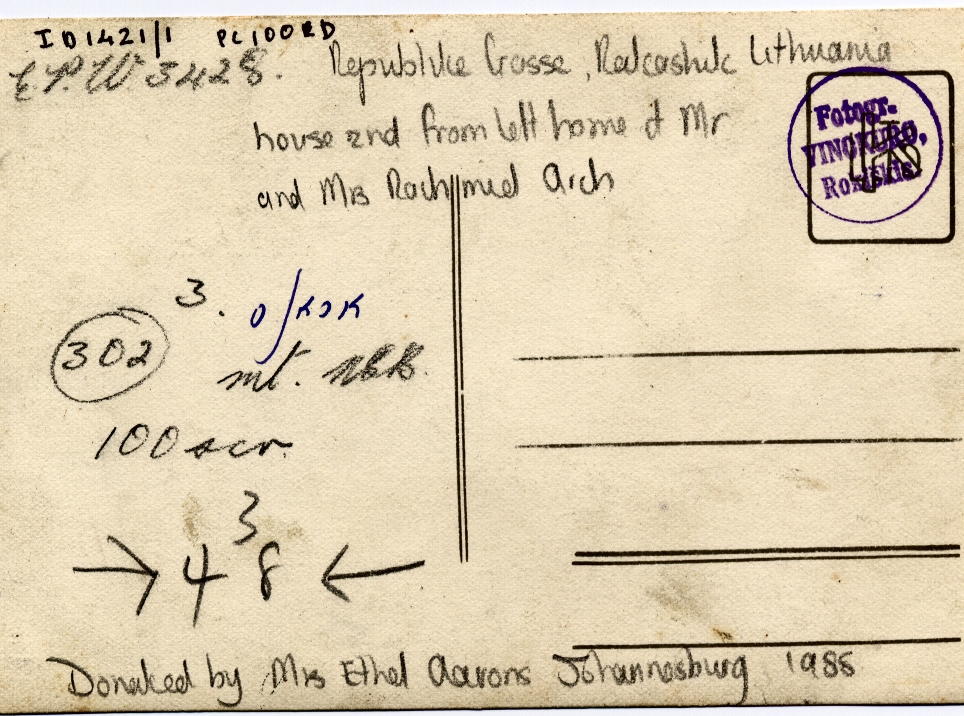 ID1421/1 PC100RD
E.P.W. 3428. Republike Gasse, Rakashik Lithuania
house 2nd from left home of Mr
and Mrs Rachmiel Arch
Fotogr.
Rokiškis.
3.
302
mt.
100 scr.
3
→ 4 8 ←
Donated by Mrs Ethel Aarons Johannesburg 1988